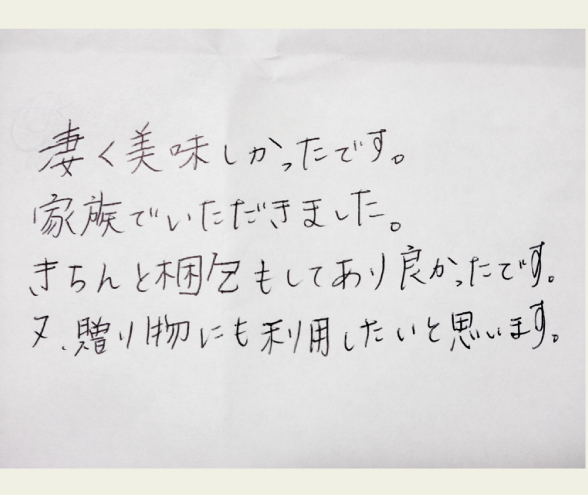 凄く美味しかったです。
家族でいただきました。
きちんと梱包もしてあり良かったです。
又、贈り物にも利用したいと思います。